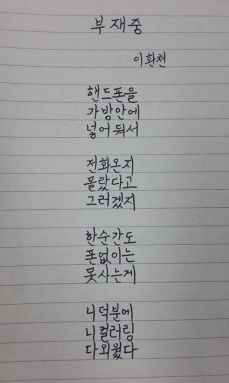 부재중
이환천
핸드폰을
가방안에
넣어둬서
전화온지
몰랐다고
그러겠지
한순간도
폰없이는
못사는게
니덕분에
니컬러링
다외웠다